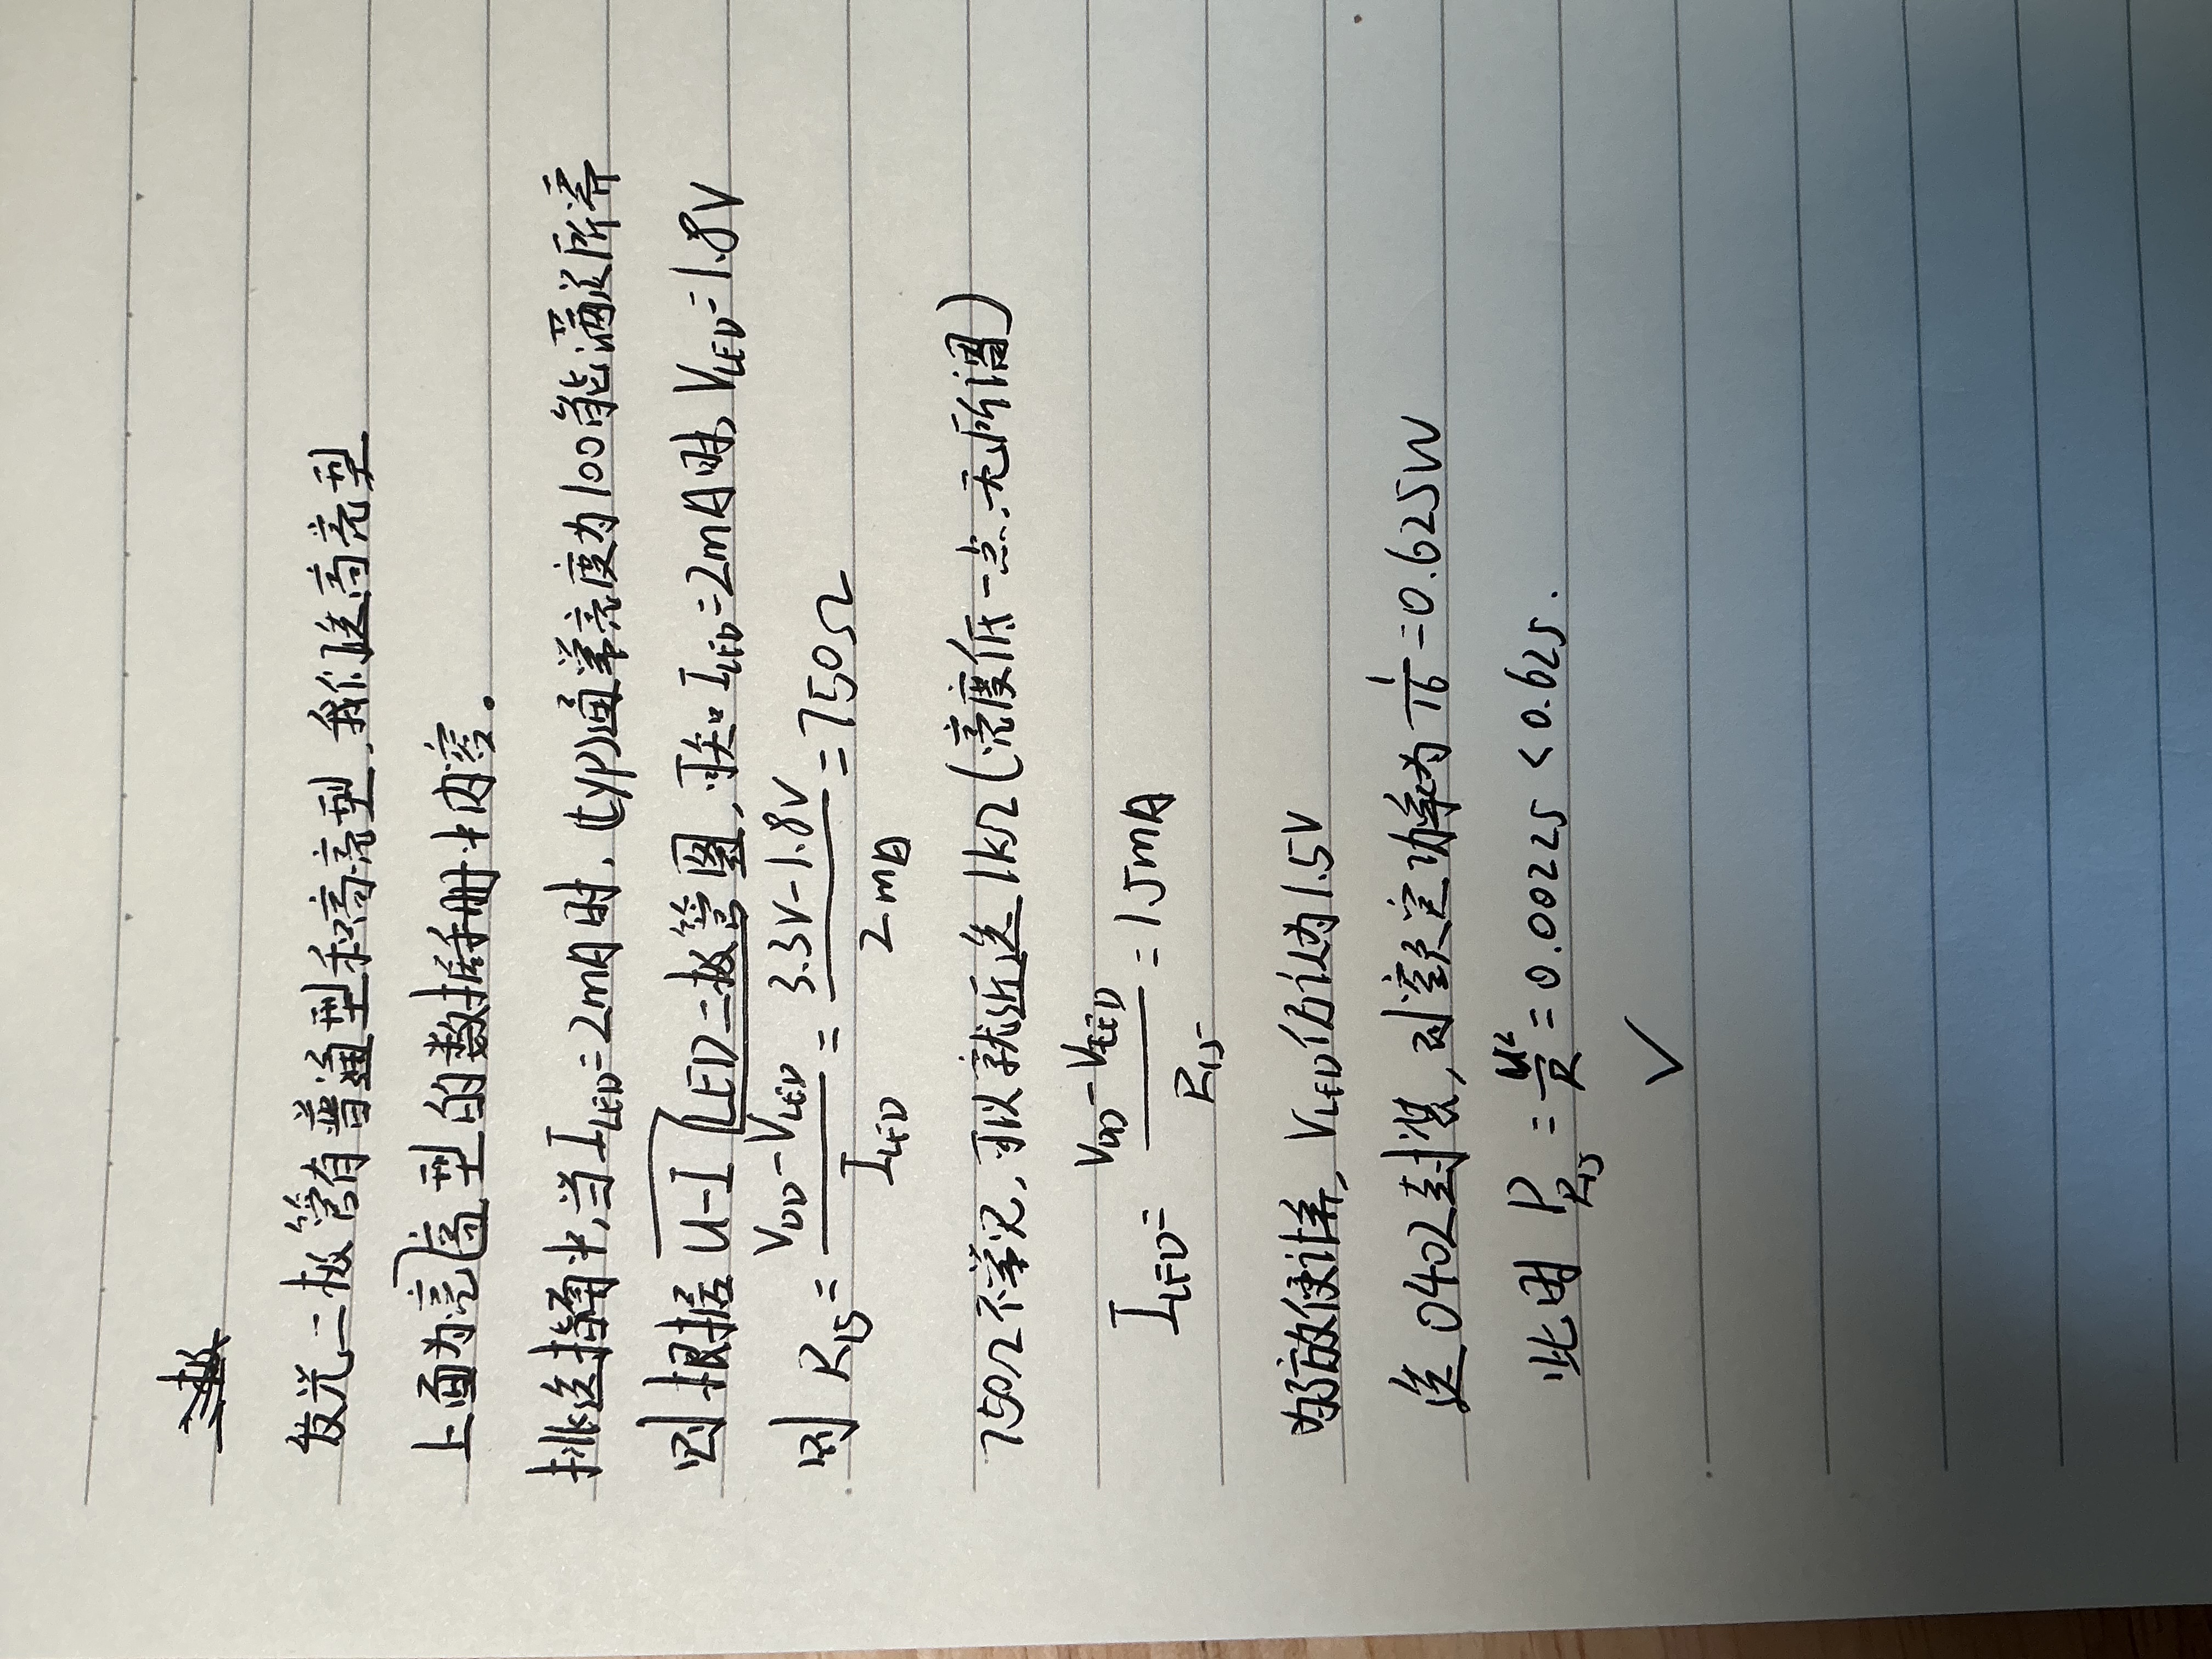 发光二极管有普通型和高亮型,我们选高亮型
上面为亮高型的数据手册中内容。
挑选指南中,当ILED=2mA时,(typ)通常亮度为100能满足所需
则根据U-I LED二极管图,可知ILED=2mA时,VLED=1.8V
则 R15= (VDD-VLED)/ILED = (3.3V-1.8V)/2mA = 750Ω
750Ω不常见,可以就近选1kΩ(亮度低一点,无所谓)
ILED= (VDD-VLED)/R15 = 15mA
为了放便计算,VLED仍认为1.5V
选0402封装,对应额定功率为 1/16=0.625W
此时 PR15 = U²/R = 0.00225 < 0.625.
✓